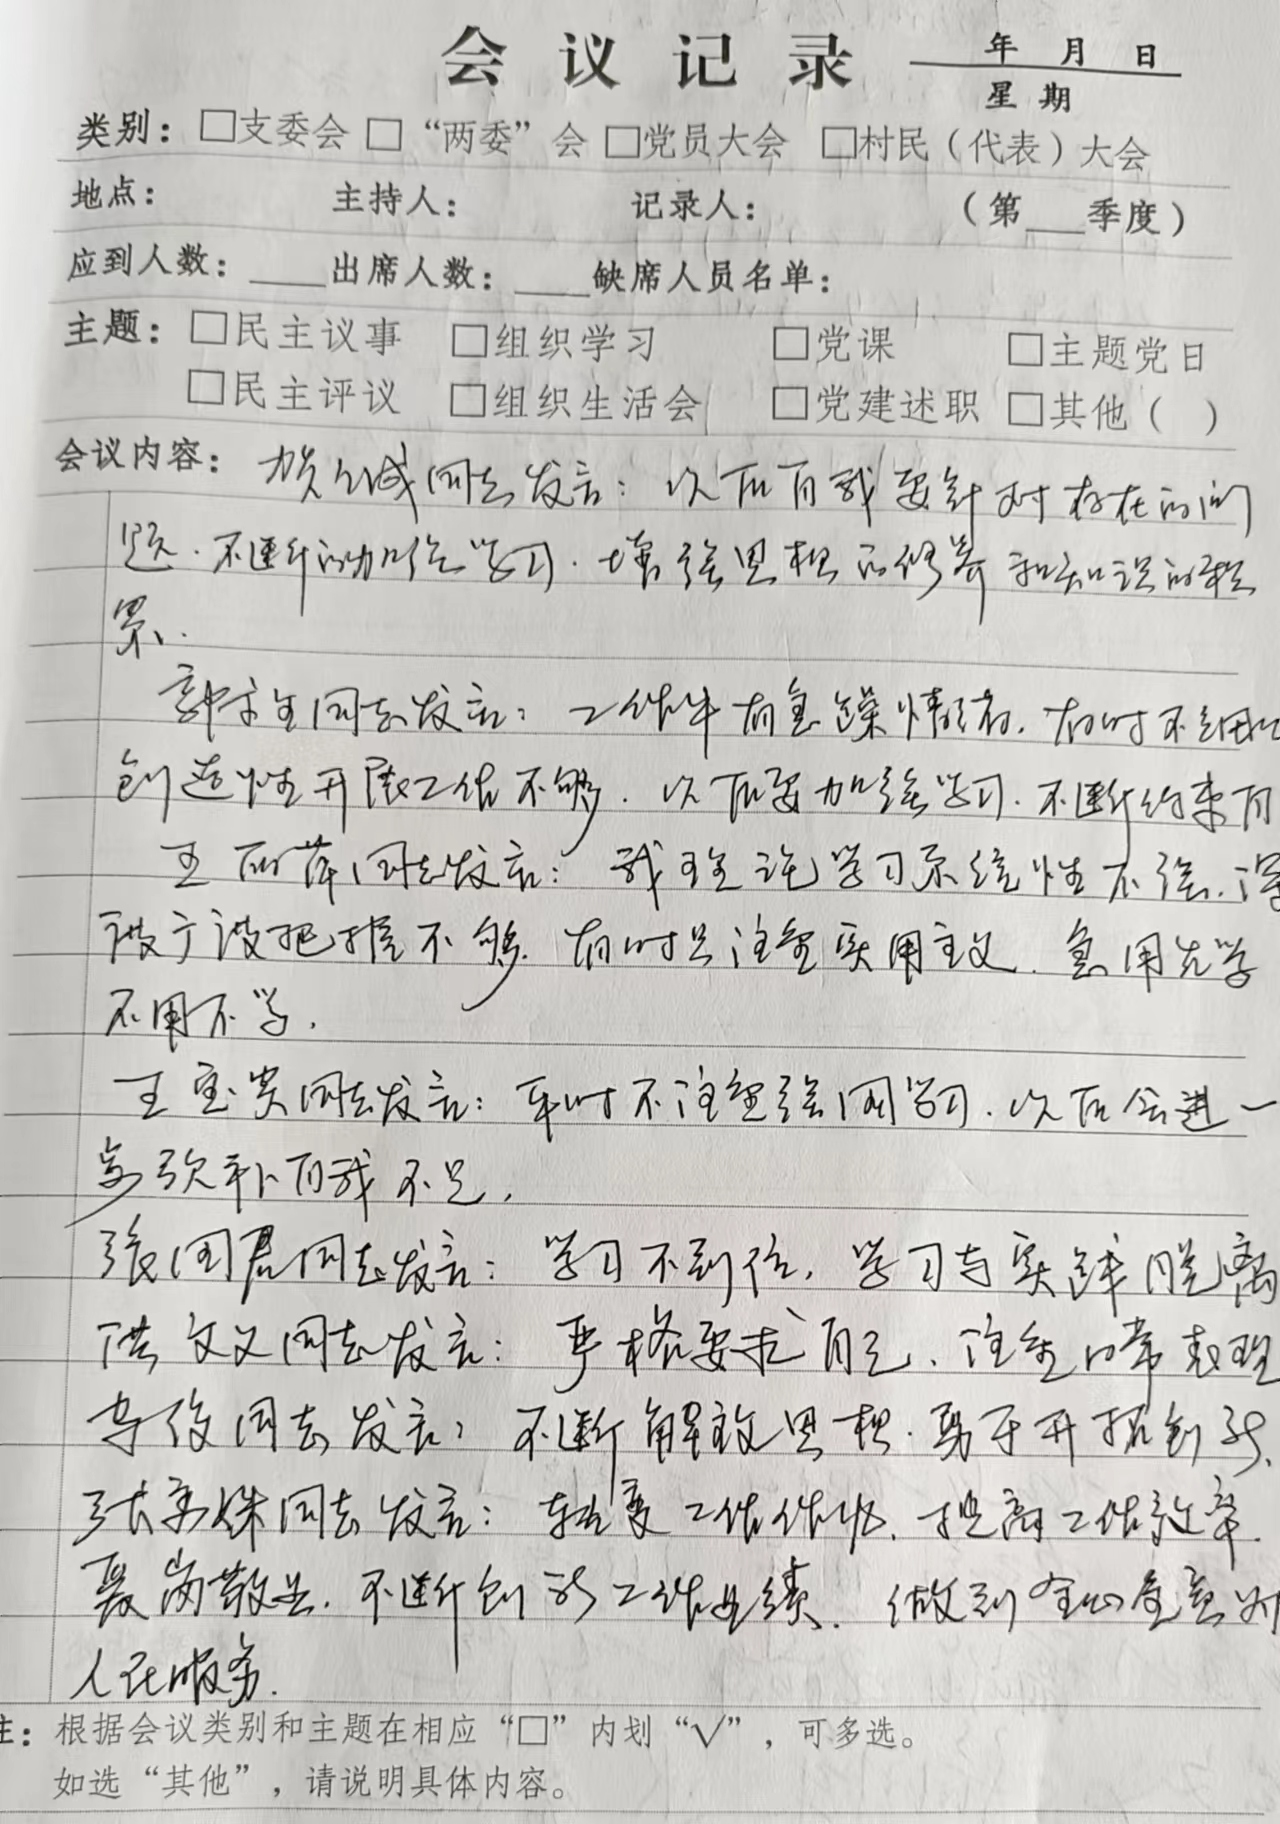 会议记录
年 月 日
星期
类别：□支委会 □“两委”会 □党员大会 □村民（代表）大会
地点： 主持人： 记录人： （第___季度）
应到人数：____出席人数：____缺席人员名单：
主题：□民主议事 □组织学习 □党课 □主题党日
□民主评议 □组织生活会 □党建述职 □其他（ ）
会议内容：贺 诚同志发言：次后自我要针对存在的问
题．不断的加强学习．增强思想的修养和知识的积
累、．
同志发言：工作中有急躁情绪．有时不细心
创造性开展工作不够．次后要加强学习．不断约束自
王丽萍同志发言：我理论学习系统性不强．深
度广度把握不够．有时只注重实用主义．急用先学
不用不学．
王宝贵同志发言：平时不注重强国学习．次后会进一
步弥补自我不足．
张国君同志发言：学习不到位，学习与实践脱离
洪文义同志发言：严格要求自己、注重日常表现
李俊同志发言：不断解放思想．勇于开拓创新．
张 姝同志发言：转变工作作风．提高工作效率．
爱岗敬业．不断创新工作业绩．做到全心全意为
人民服务．
注：根据会议类别和主题在相应“□”内划“√”，可多选。
如选“其他”，请说明具体内容。